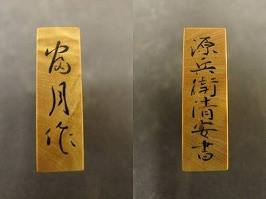 富月作
源兵衛清安書